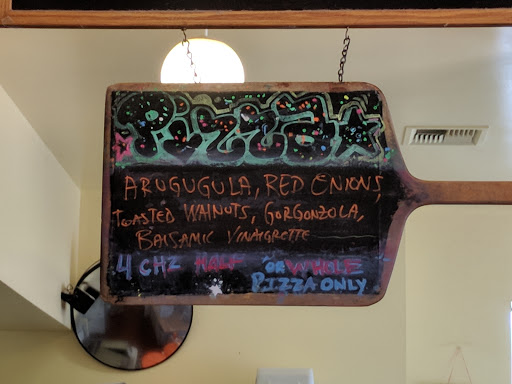 Pizza
ARUGUGULA, RED ONIONS,
TOASTED WALNUTS, GORGONZOLA,
BALSAMIC VINAIGRETTE
4 CHZ HALF "OR WHOLE"
PIZZA ONLY